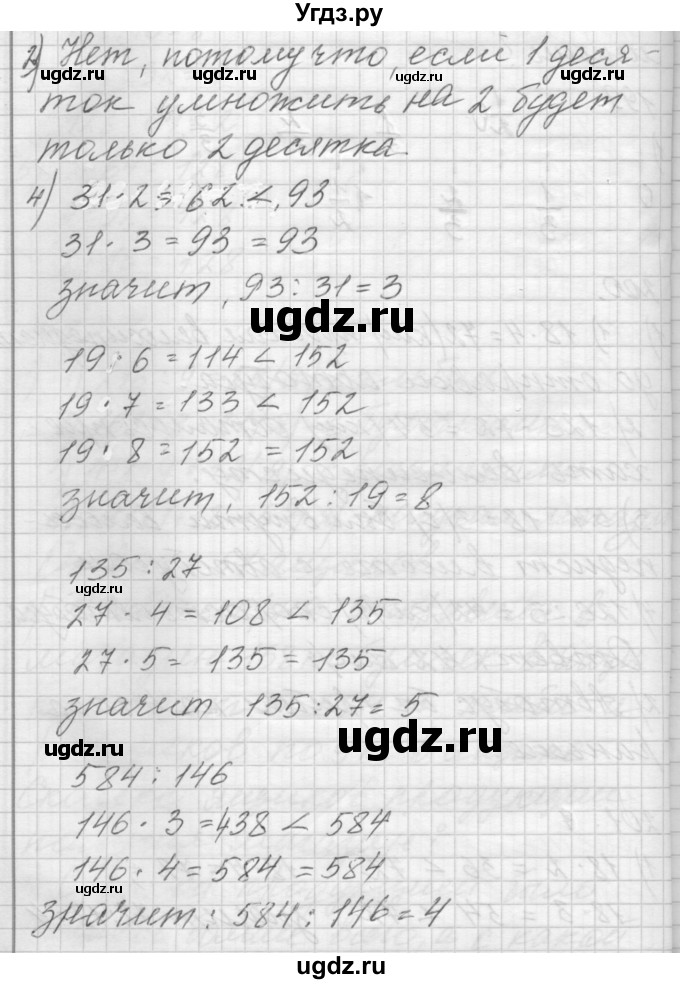 Угдз.ру
2) Нет, потому что, если 1 деся-
ugdz.ru ugdz.ru ugdz.ru
ток умножить на 2 будет
только 2 десятка.
4) 31 · 2 = 62 < 93
ugdz.ru ugdz.ru
31 · 3 = 93 = 93
значит, 93 : 31 = 3
ugdz.ru
19 · 6 = 114 < 152
19 · 7 = 133 < 152
19 · 8 = 152 = 152
значит, 152 : 19 = 8
135 : 27
ugdz.ru
27 · 4 = 108 < 135
27 · 5 = 135 = 135
значит 135 : 27 = 5
ugdz.ru
ugdz.ru
584 : 146
146 · 3 = 438 < 584
146 · 4 = 584 = 584
ugdz.ru ugdz.ru
значит : 584 : 146 = 4
ugdz.ru